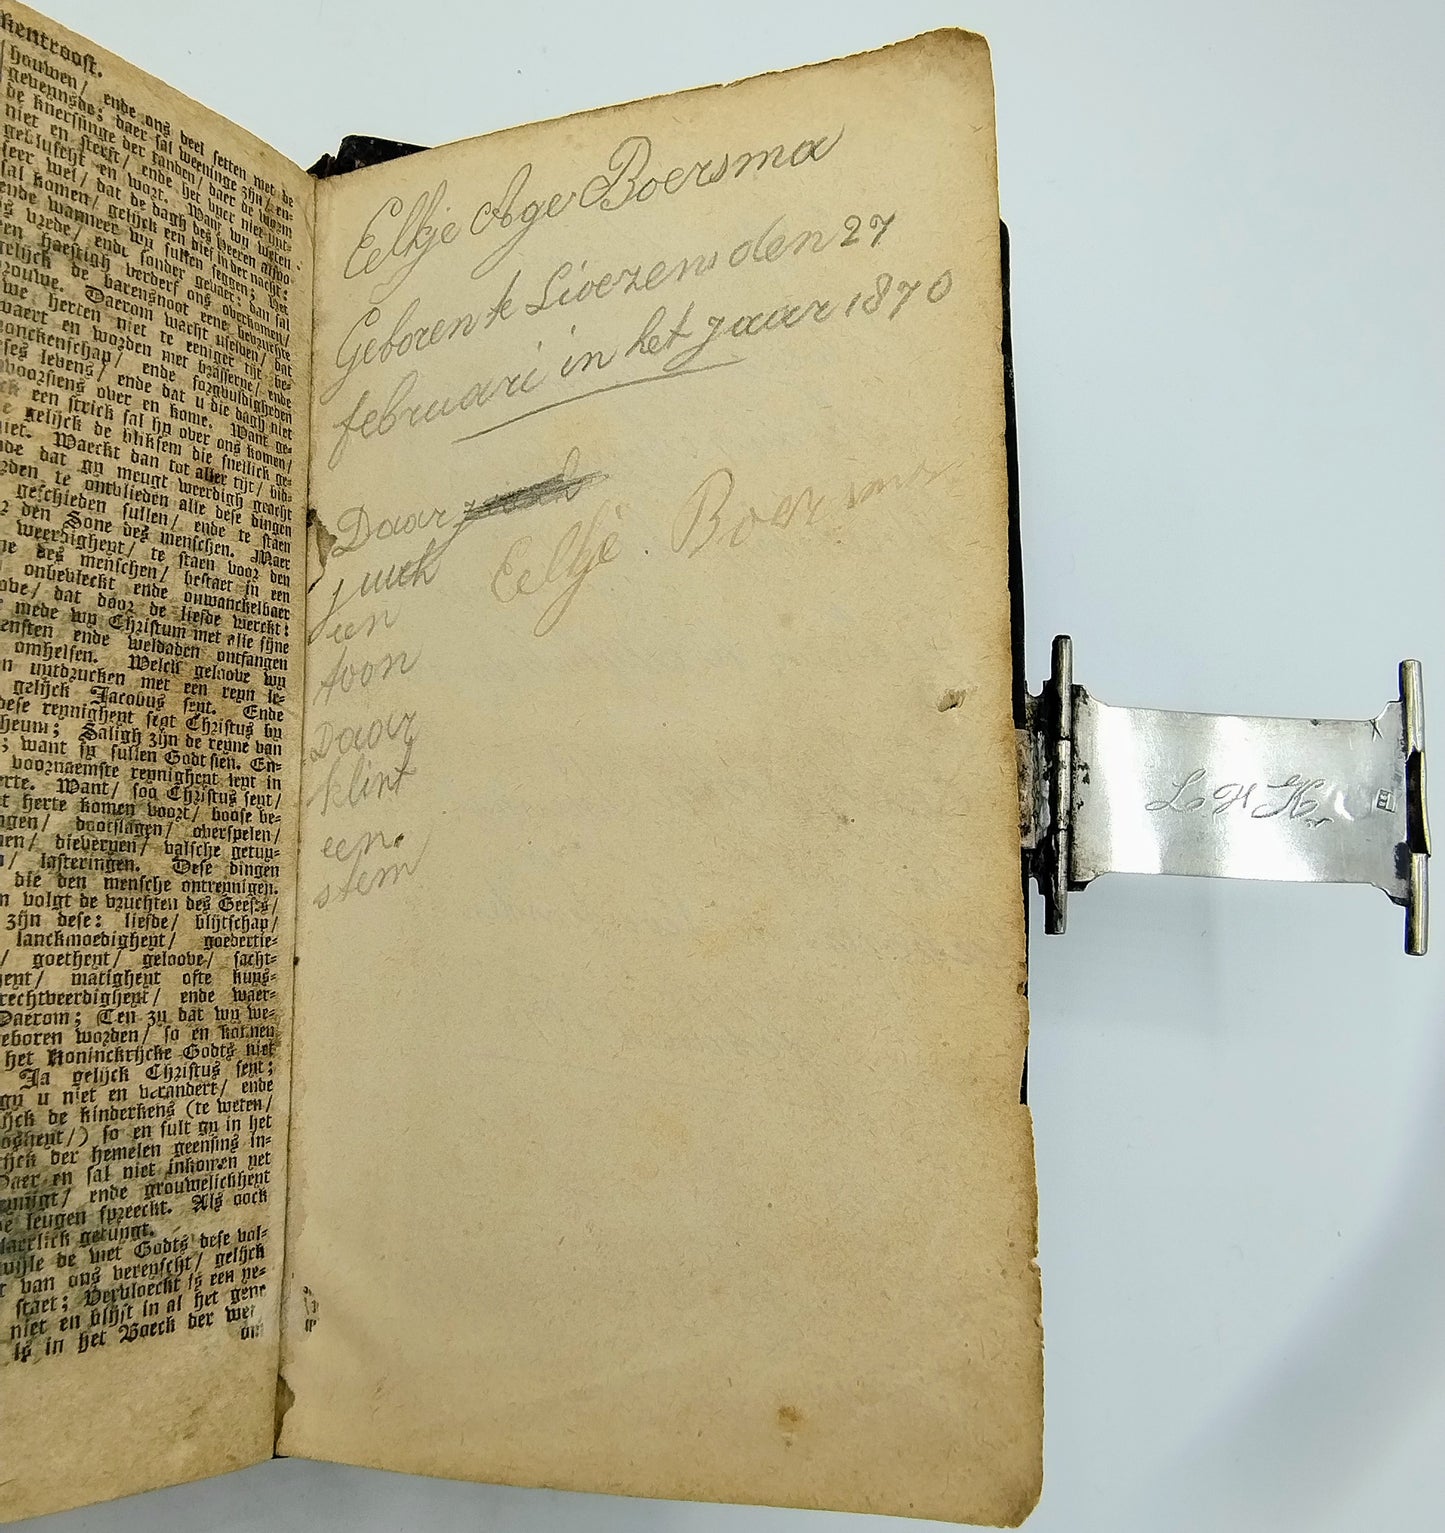 kentroost.
houwen/ ende ons deel setten met de
geveynsde; daer sal weeninge zijn/ en-
de knerssinge der tanden/ daer de worm
niet en sterft/ ende het vuer niet uyt-
gebluscht en wort. Want wy weten
seer wel/ dat de dagh des Heeren alsoo
sal komen/ gelijck een dief in der nacht:
ende wanneer wy sullen seggen; Het
is vrede/ ende sonder gevaer: dan sal
een haestigh verderf ons overkomen/
gelijck de barensnoot eene bevruchte
vrouwe. Daerom wacht uselven/ dat
uwe herten niet te eeniger tijt be-
swaert en worden met brasserne/ ende
dronckenschap/ ende sorghvuldigheden
deses levens/ ende dat u die dagh niet
onvoorsiens over en kome. Want ge-
lijck een strick sal hy over ons komen/
gelijck de bliksem die snellick ge-
schiet. Waeckt dan tot aller tijt/ bid-
dende dat gy meugt weerdigh geacht
worden te ontvlieden alle dese dingen
geschieden sullen/ ende te staen
voor den Sone des menschen. Maer
weerdigheyt/ te staen voor den
Sone des menschen/ bestaet in een
onbevleckt ende onwanckelbaer
geloove/ dat door de liefde werckt:
mede wy Christum met alle sijne
diensten ende weldaden ontfangen
omhelsen. Welck geloove wy
uytdrucken met een reyn le-
gelijck Jacobus seyt. Ende
dese reynigheyt segt Christus by
Mattheum; Saligh zijn de reyne van
; want sy sullen Godt sien. En-
voornaemste reynigheyt leyt in
herte. Want/ soo Christus seyt/
uyt het herte komen voort/ boose be-
dingen/ dootslagen/ overspelen/
dieveryen/ valsche getuy-
lasteringen. Dese dingen
die den mensche ontreynigen.
volgt de vruchten des Geests/
zijn dese: liefde/ blijtschap/
lanckmoedigheyt/ goedertie-
/ goetheyt/ geloove/ sacht-
heyt/ matigheyt ofte kuys-
rechtveerdigheyt/ ende waer-
Daerom; Ten zy dat wy we-
geboren worden/ so en konnen
het Koninckrijcke Godts niet
Ja gelijck Christus seyt;
gy u niet en verandert/ ende
gelijck de kinderkens (te weten/
boosheyt/) so en sult gy in het
Rijck der hemelen geensins in-
Daer en sal niet inkomen yet
ende grouwelickheyt
leugen spreeckt. Als oock
klaerlick getuygt.
wijle de wet Godts dese vol-
van ons vereyscht/ gelijck
staet; Vervloeckt is een ye-
niet en blijft in al het gene
is in het Boeck der wet
om
Eelkje Ages Boersma
Geboren te Lioezens den 27
februari in het jaar 1870
Daar
juich
een
toon
Daar
klint
een
stem
Eelkje. Boersma
L H K